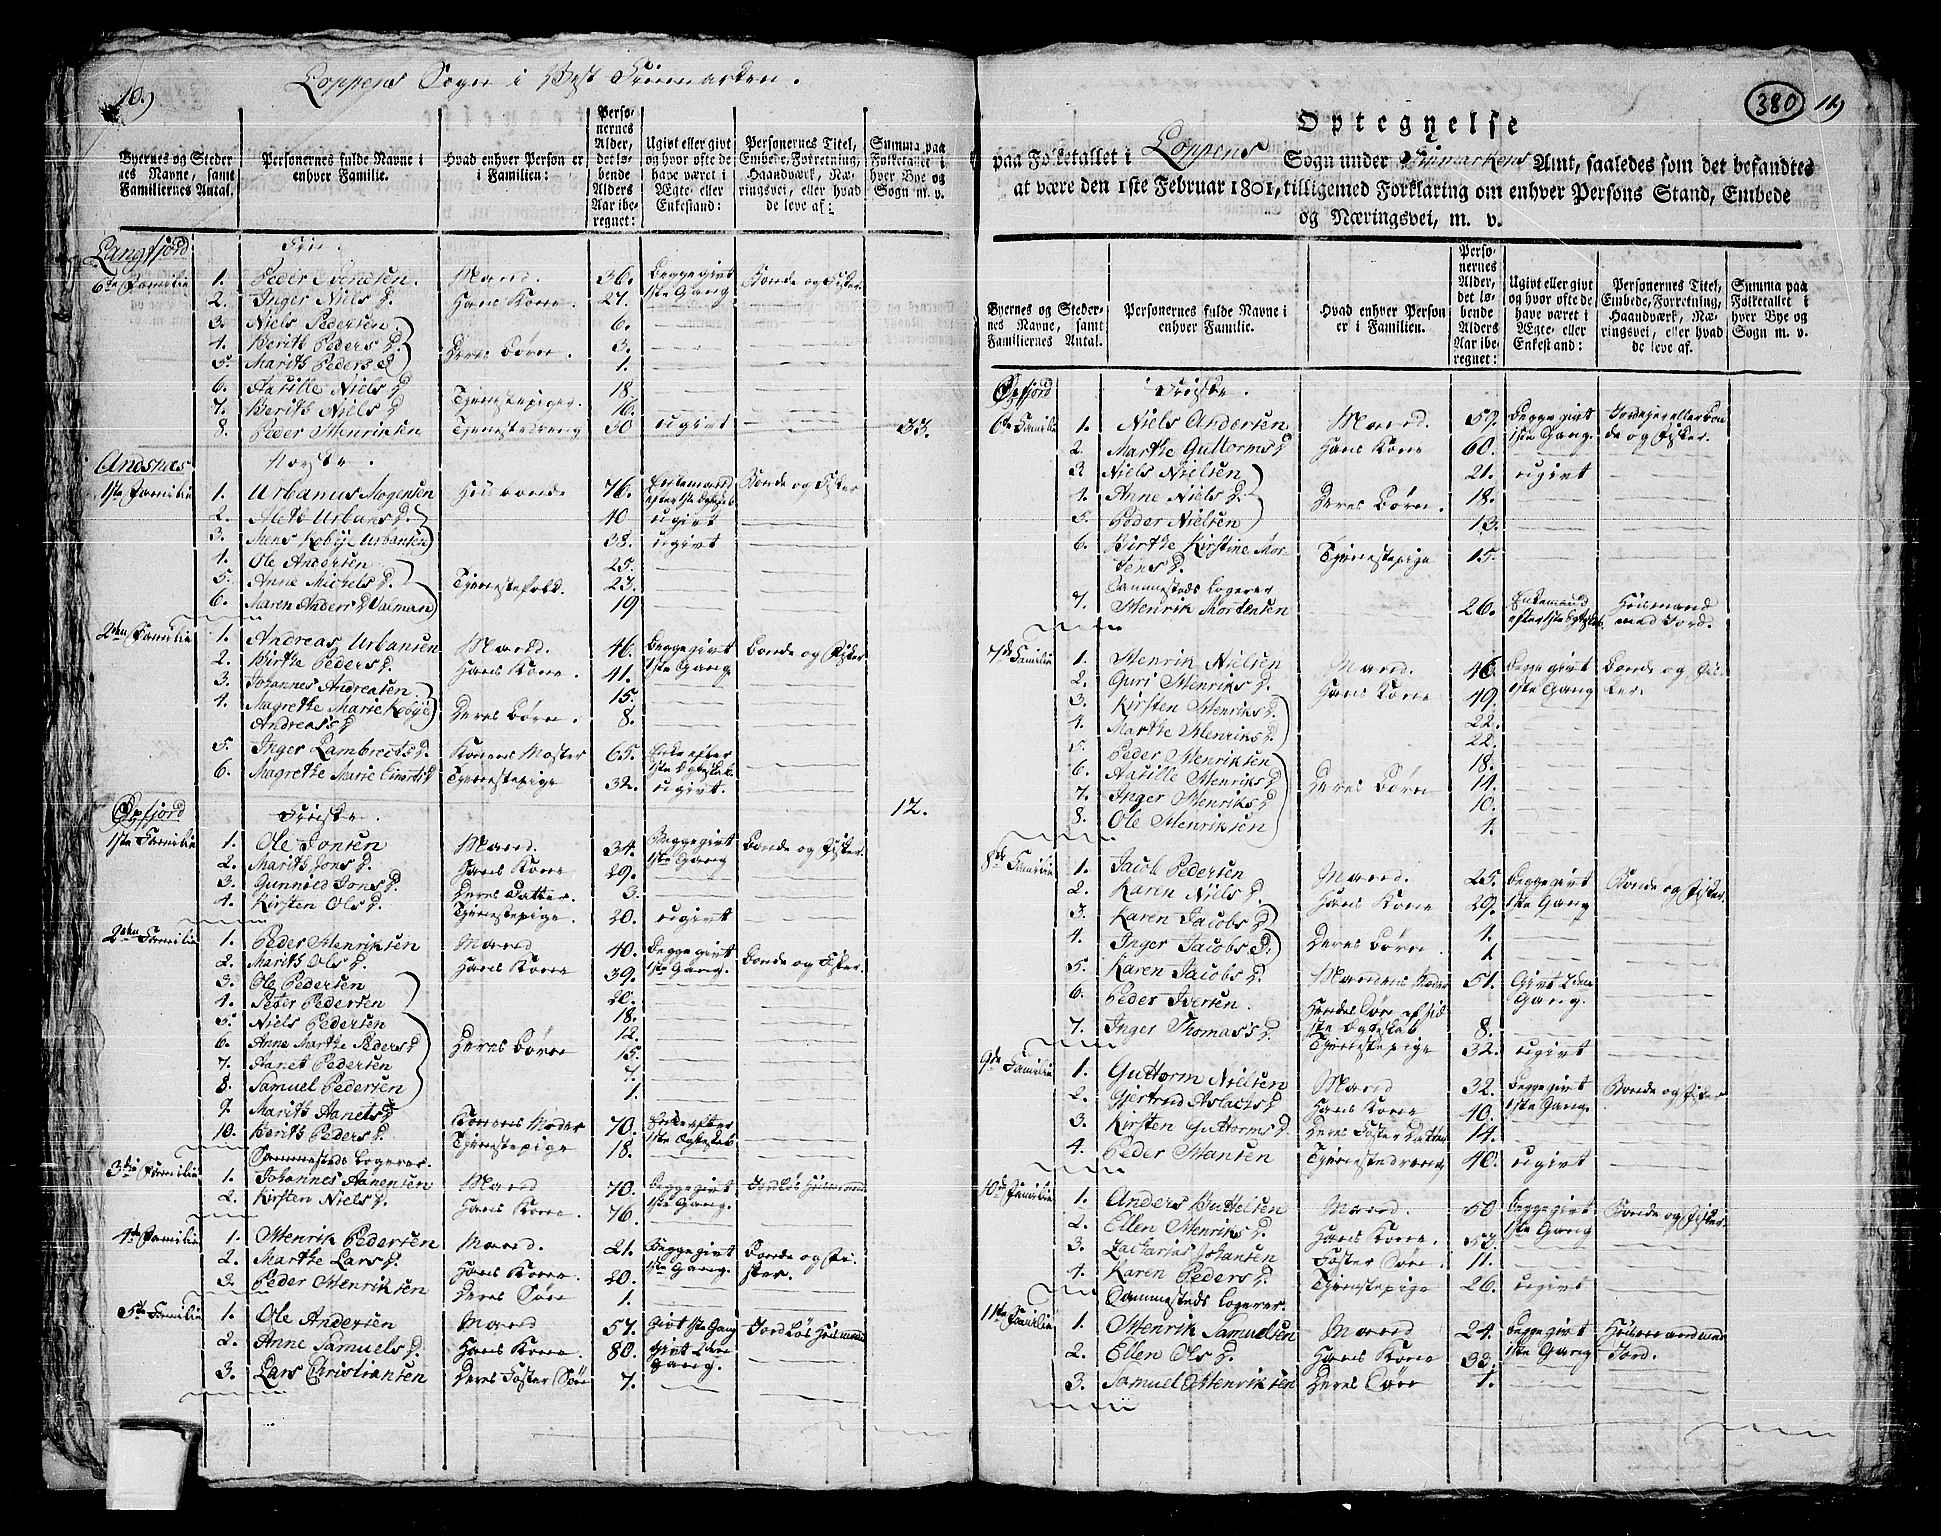 10.)
Loppens Sogn i Vest Finmarken.
Byernes og Steder nes Navne, samt Familiernes Antal.
Personernes fulde Navne i enhver Familie.
Hvad enhver Person er i Familien:
Perso- nernes Alder, det lø- bende Alders Aar ibe- regnet:
Ugivt eller givt og hvor ofte de have været i Ægte- eller Enkestand:
Personernes Titel, Embede, Forretning, Haandværk, Næ- ringsvei, eller hvad de leve af:
Summa paa Folketallet i hver Bye og Sogn m. v.
Langfjord
6te Familie 1. Peder Svendsen Mand. 36. Begge givt 1ste Gang Bonde og Fisker
2. Inger Niels D. Hans Kone. 27.
3. Niels Pedersen 6.
4. Berith Peders D. Deres Børn. 3.
5. Marith Peders D 1.
6. Aasille Niels D 18.
7. Berith Niels D Tjenestepiger. 16.
8. Peder Henriksen Tjenestedreng 30 ugivt 33.
Andsnæs Norske.
1ste Familie 1. Urbanus Mogensen Huusbonde 76. Enkemand efter 1ste Egteskab Bonde og Fisker
2. Aleth Urbans D. 40 ugivt
3. Mens Kobye Urbansen 38. ugivt
4. Ole Andersen 25.
5. Anne Michels D. Tjenestefolk. 23.
6. Maren Anders D Valman 19
2den Familie 1. Andreas Urbansen Mand. 46. Begge givt 1ste Gang Bonde og Fisker
2. Birthe Peders D. Hans Kone. 41.
3. Johannes Andreasen. 15.
4. Magrethe Marie Kobye Andreas's D Deres Børn. 8.
5. Inger Lambrects D. Konens Moster 65. Enke efter 1ste Egteskab.
6. Magrethe Marie Einerts D Tjenestepige 32. ugivt.
Øxfjord Finske. 12.
1ste Familie 1. Ole Jonsen Mand. 34. Begge givt 1ste Gang Bonde og Fisker.
2. Marith Jons D. Hans Kone 29.
3. Gunnild Jons D. Deres Datter. 3.
4. Kirsten Ols D. Tjenestepige. 20. ugivt
2den Familie 1. Peder Henriksen Mand 40. Begge givt 1ste Gang. Bonde og Fisker.
2. Marith Ols D. Hans Kone 39.
3. Ole Pedersen 20.
4. Peter Pedersen 18.
5. Niels Pedersen 12.
6. Anne Marthe Peders D Deres Børn 15.
7. Aanet Pedersen 7.
8. Samuel Pedersen 1.
9. Marith Aanets D Konens Moder 70. Enke efter 1ste Egteskab
10. Berith Peders D. Tjenestepige 18.
Sammesteds logerer.
3die Familie 1. Johannes Aanensen Mand 70. Begge givt 1ste Gang. Jordløs Huusmand
2. Kirsten Niels D. Hans Kone. 76.
4de Familie 1. Henrik Pedersen Mand. 21. Begge givt 1ste Gang. Bonde og Fisker.
2. Marthe Lars D. Hans Kone. 20.
3. Peder Henriksen Deres Søn 1.
5te Familie 1. Ole Andersen Mand 57. Givt 1ste Gang Jordløs Huusmand
2. Anne Samuels D. Hans Kone. 80. Givt 2den Gang.
3. Lars Christiansen Deres Foster Søn 7.
380 11.)
Optegnelse
paa Folketallet i Loppens Sogn under Finmarkens Amt, saaledes som det befandtes
at være den 1ste Februar 1801, tilligemed Forklaring om enhver Persons Stand, Embede
og Næringsvei, m. v.
Byernes og Steder- nes Navne, samt Familiernes Antal.
Personernes fulde Navne i enhver Familie.
Hvad enhver Person er i Familien.
Perso- nernes Alder, det lø- bende Alders Aar ibe- regnet:
Ugivt eller givt og hvor ofte de have været i Ægte- eller Enkestand:
Personernes Titel, Embede, Forretning, Haandværk, Næ- ringsvei, eller hvad de leve af.
Summa paa Folketallet i hver Bye og Sogn m. v.
Øxfjord Finske.
6te Familie 1. Niels Andersen Mand. 59. Begge givt 1ste Gang.
2. Marthe Guttorms D Hans Kone 60.
3. Niels Nielsen 21. ugivt
4. Anne Niels D. Deres Børn. 18.
5. Peder Nielsen 13.
6. Birthe Kirstine Mor- tens D. Tjenestepige 15.
Sammesteds logerer
7. Henrik Mortensen 26. Enkemand efter 1ste Egteskab. Huusmand med Jord.
7de Familie 1. Henrik Nielsen Mand. 46. Begge givt 1ste Gang Bonde og Fisker.
2. Guri Henriks D. Hans Kone 49.
3. Kirsten Henriks D. 22.
4. Marthe Henriks D. 22.
5. Peder Henriksen 18.
6. Aasille Henriks D Deres Børn 14.
7. Inger Henriks D 10.
8. Ole Henriksen 1.
8de Familie 1. Jacob Pedersen Mand. 25. Begge givt 1ste Gang Bonde og Fisker.
2. Karen Niels D. Hans Kone 29.
3. Karen Jacobs D 4.
4. Inger Jacobs D. Deres Børn 1
5. Karen Jacobs D. Mandens Moder 51. Givt 2den Gang.
6. Peder Iversen. Hendes Søn af sidste Egteskab 8.
7. Inger Thomas's D. Tjenestepige 32. ugivt
9de Familie 1. Guttorm Nielsen Mand 32. Begge givt 1ste Gang. Bonde og Fisker
2. Gjertrud Aslacks D Hans Kone 40.
3. Kirsten Guttorms D. Deres Foster Datter 14.
4. Peder Hansen Tjenestedreng 40. ugivt
10de Familie 1. Anders Buttelsen Mand. 50 Begge givt 1ste Gang. Bonde og Fisker.
2. Ellen Henriks D. Hans Kone.
3. Zacharias Johansen Foster Søn. 11.
4. Karen Peders D. Tjenestepige 26. ugivt
Sammesteds logerer.
11te Familie 1. Henrik Samuelsen Mand 24. Begge givt 1ste Gang Huusmand med Jord.
2. Ellen Ols D. Hans Kone 33.
3. Samuel Henriksen Deres Søn 1.